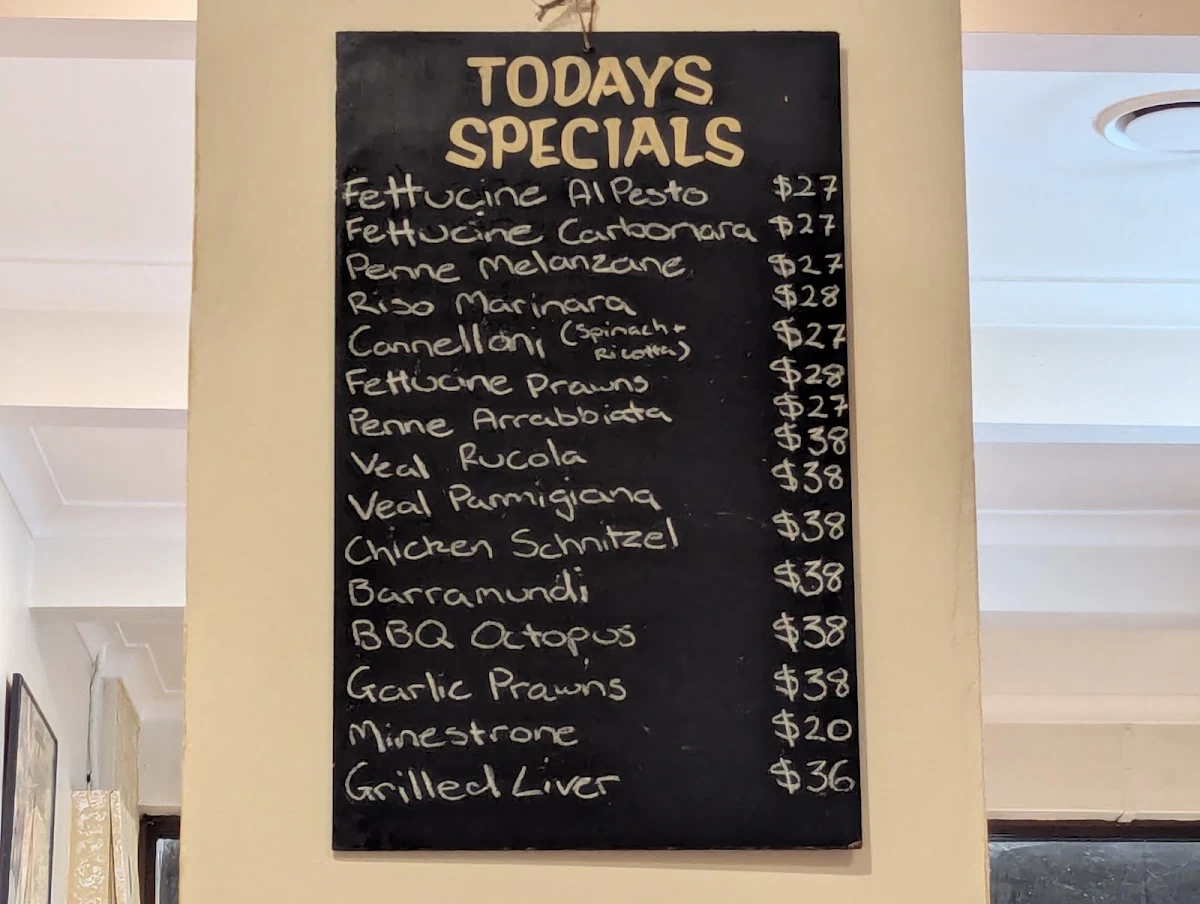 TODAYS
SPECIALS
Fettucine Al Pesto $27
Fettucine Carbonara $27
Penne Melanzane $27
Riso Marinara $28
Cannelloni (Spinach + Ricotta) $27
Fettucine Prawns $28
Penne Arrabbiata $27
Veal Rucola $38
Veal Parmigiana $38
Chicken Schnitzel $38
Barramundi $38
BBQ Octopus $38
Garlic Prawns $38
Minestrone $20
Grilled Liver $36